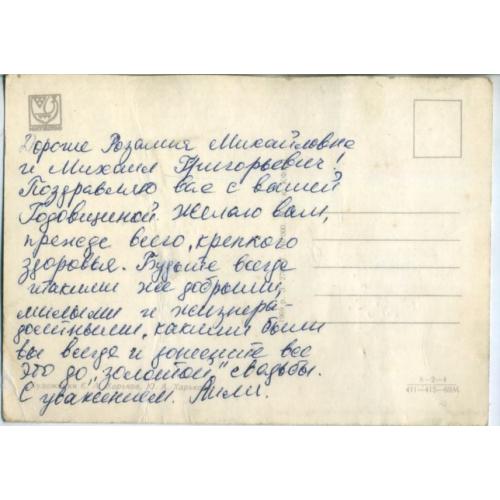 Дорогие Розалия Михайловна
и Михаил Григорьевич!
Поздравляю вас с вашей
Годовщиной. Желаю вам,
прежде всего, крепкого
здоровья. Будьте всегда
такими же добрыми,
милыми и жизнера-
достными, какими были
вы всегда и донесите все
это до "золотой" свадьбы.
С уважением. Лили.
Художники Е. Харьков, Ю. А. Харьков
8-2-4